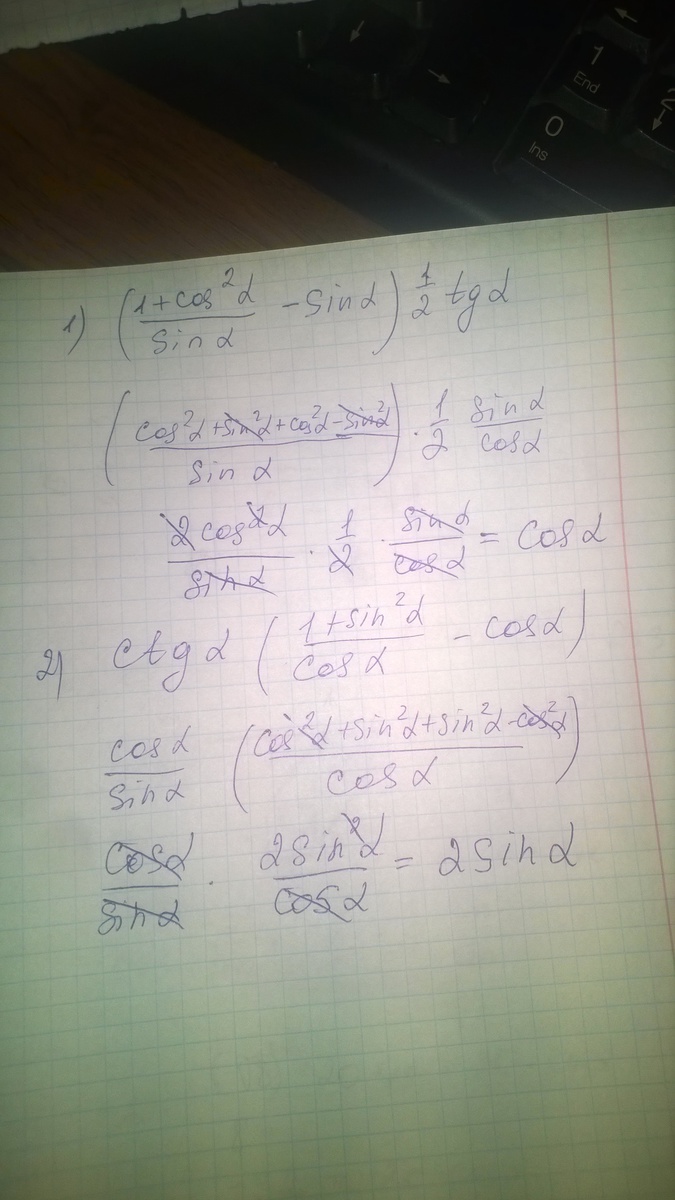 1
End
2
0
Ins
1) ((1+cos²α)/(sinα) - sinα) 1/2 tgα
((cos²α+sin²α+cos²α-sin²α)/(sinα)) · 1/2 sinα/cosα
(2cos²α)/(sinα) · 1/2 · sinα/cosα = cosα
2) ctgα ((1+sin²α)/(cosα) - cosα)
cosα/sinα ((cos²α+sin²α+sin²α-cos²α)/(cosα))
cosα/sinα · (2sin²α)/(cosα) = 2sinα